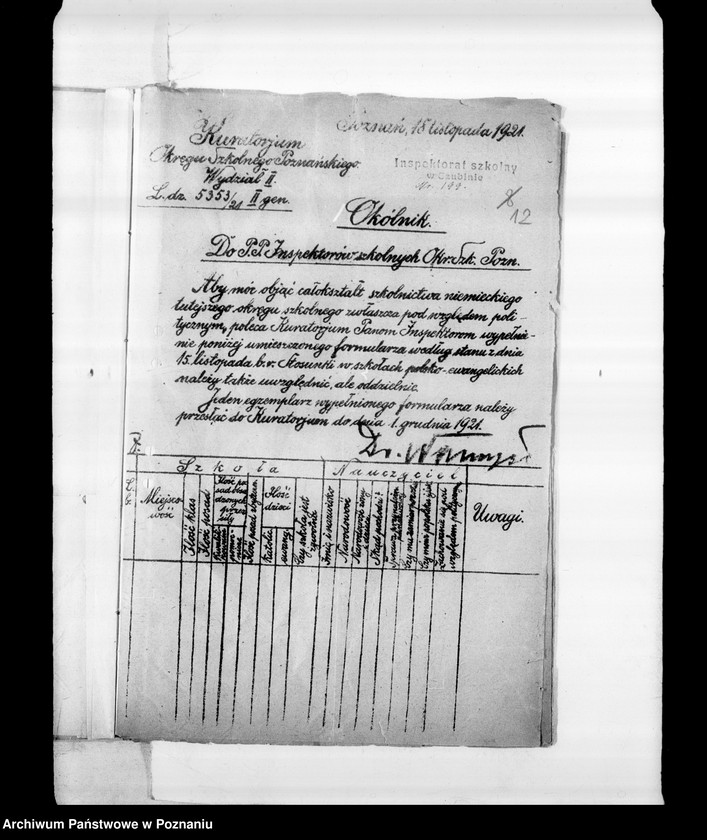 Kuratorjum
Okręgu Szkolnego Poznańskiego.
Wydział II.
L. dz. 5353/21 II gen.
Poznań, 18 listopada 1921.
Inspektorat szkolny
w Szubinie
No.
12
Okólnik.
Do P.P. Inspektorów szkolnych Okr. Szk. Pozn.
Aby móc objąć całokształt szkolnictwa niemieckiego
tutejszego okręgu szkolnego zwłaszcza pod względem poli-
tycznym, poleca Kuratorjum Panom Inspektorom wypełnie-
nie poniżej umieszczonego formularza według stanu z dnia
15. listopada b.r. Stosunki w szkołach polsko-ewangelickich
należy także uwzględnić, ale oddzielnie.
Jeden egzemplarz wypełnionego formularza należy
przesłać do Kuratorjum do dnia 1. grudnia 1921.
Dr.
Szkoła
Nauczyciel
Miejsco-
wość
Ilość klas
Ilość posad
Ilość po
sad obsa
dzonych
przez
siły
Ilość
dzieci
katoli.
ewang.
Czy szkoła jest
Imię i nazwisko
Narodowość
Narodowość żony
Skąd pochodzi?
Uwagi.
Archiwum Państwowe w Poznaniu